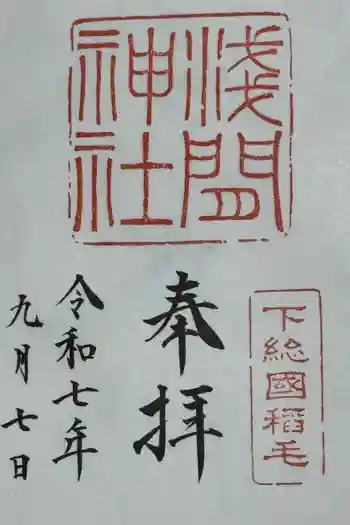 淺間
神社
下総國稻毛
奉拝
令和七年
九月七日